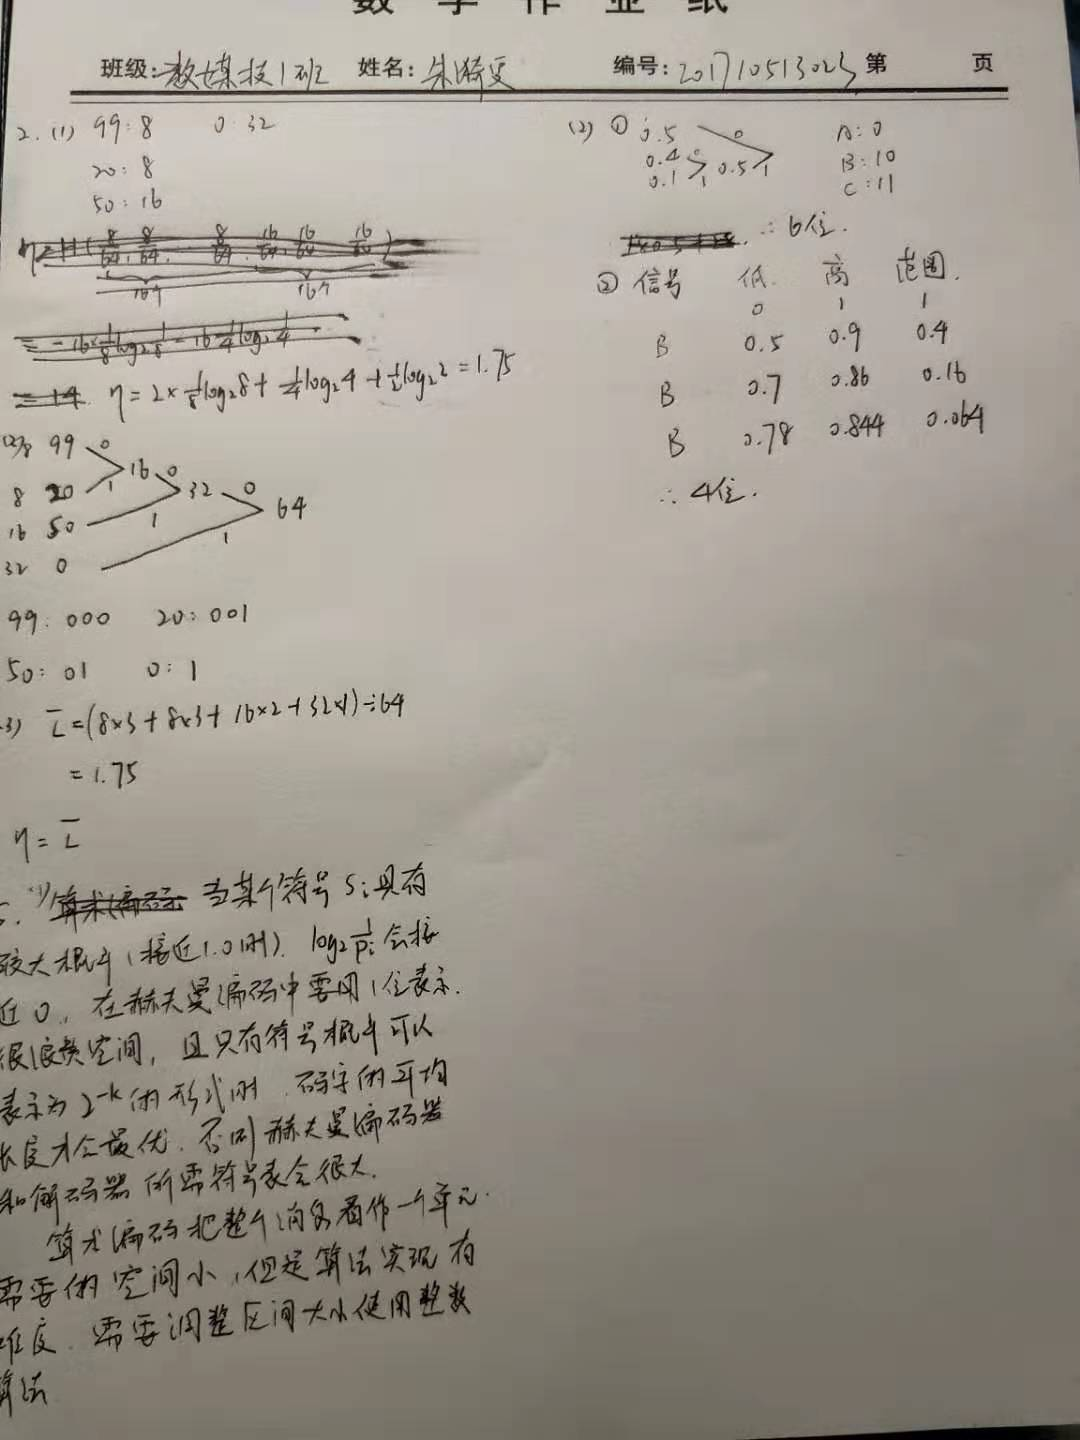 数学作业纸
班级: 数媒技1班 姓名: 朱 编号: 20171051302 第 页
2. (1) 99:8 0:32
20:8
50:16
η = 2×1/8log₂8 + 1/4log₂4 + 1/2log₂2 = 1.75
(2) 8 99 0
8 20 1 16 0
16 50 1 32 0
32 0 1 64
99: 000 20: 001
50: 01 0: 1
(3) L̅ = (8×3 + 8×3 + 16×2 + 32×1) ÷ 64
= 1.75
η = L̅
(1) 当某个符号Si具有
较大概率(接近1.0时). log₂ 1/Pi 会接
近0, 在赫夫曼编码中要用1位表示.
很浪费空间, 且只有符号概率可以
表示为2⁻ᵏ的形式时. 码字的平均
长度才会最优. 否则赫夫曼编码器
和解码器所需符号表会很大.
算术编码把整个消息看作一个单元.
需要的空间小, 但是算法实现有
难度. 需要调整区间大小使用整数
算法
(2) ① 0.5 0 A: 0
0.4 0 0.5 1 B: 10
0.1 1 C: 11
∴ 6位.
② 信号 低. 高 范围.
0 1 1
B 0.5 0.9 0.4
B 0.7 0.86 0.16
B 0.78 0.844 0.064
∴ 4位.